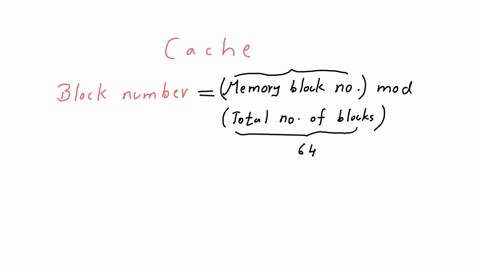 Cache
Block number = (Memory block no.) mod
(Total no. of blocks)
64